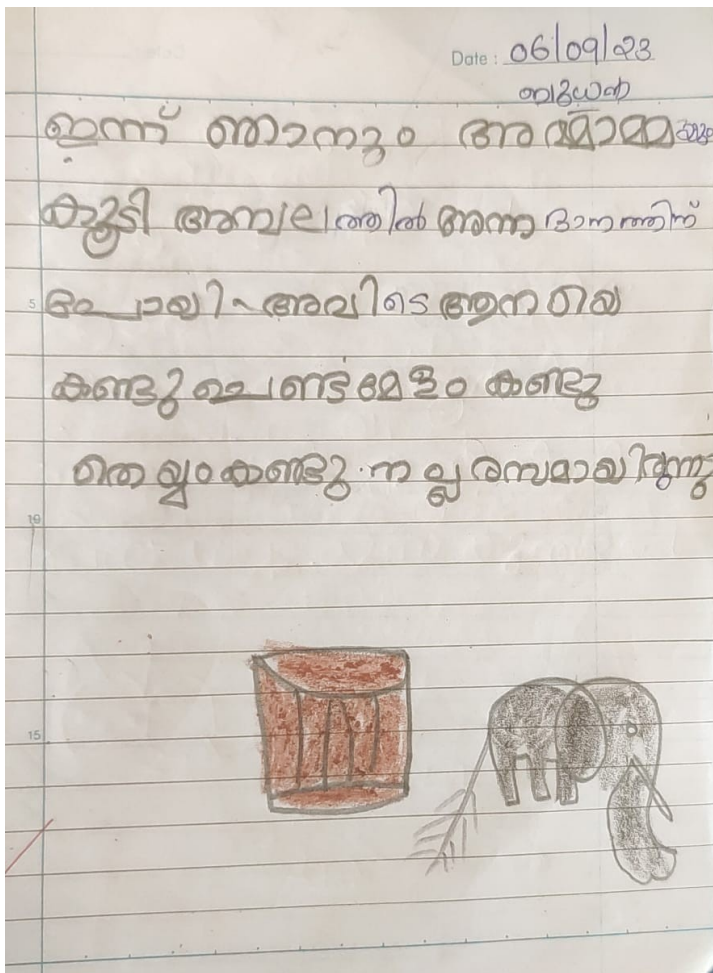 Date : 06/09/23
ബുധൻ
ഇന്ന് ഞാനും അമ്മാമ്മയും
കൂടി അമ്പലത്തിൽ അന്ന ദാനത്തിന്
5 പോയി. അവിടെ ആനയെ
കണ്ടു ചെണ്ടമേളം കണ്ടു
തെയ്യം കണ്ടു. നല്ല രസമായിരുന്നു
10
15